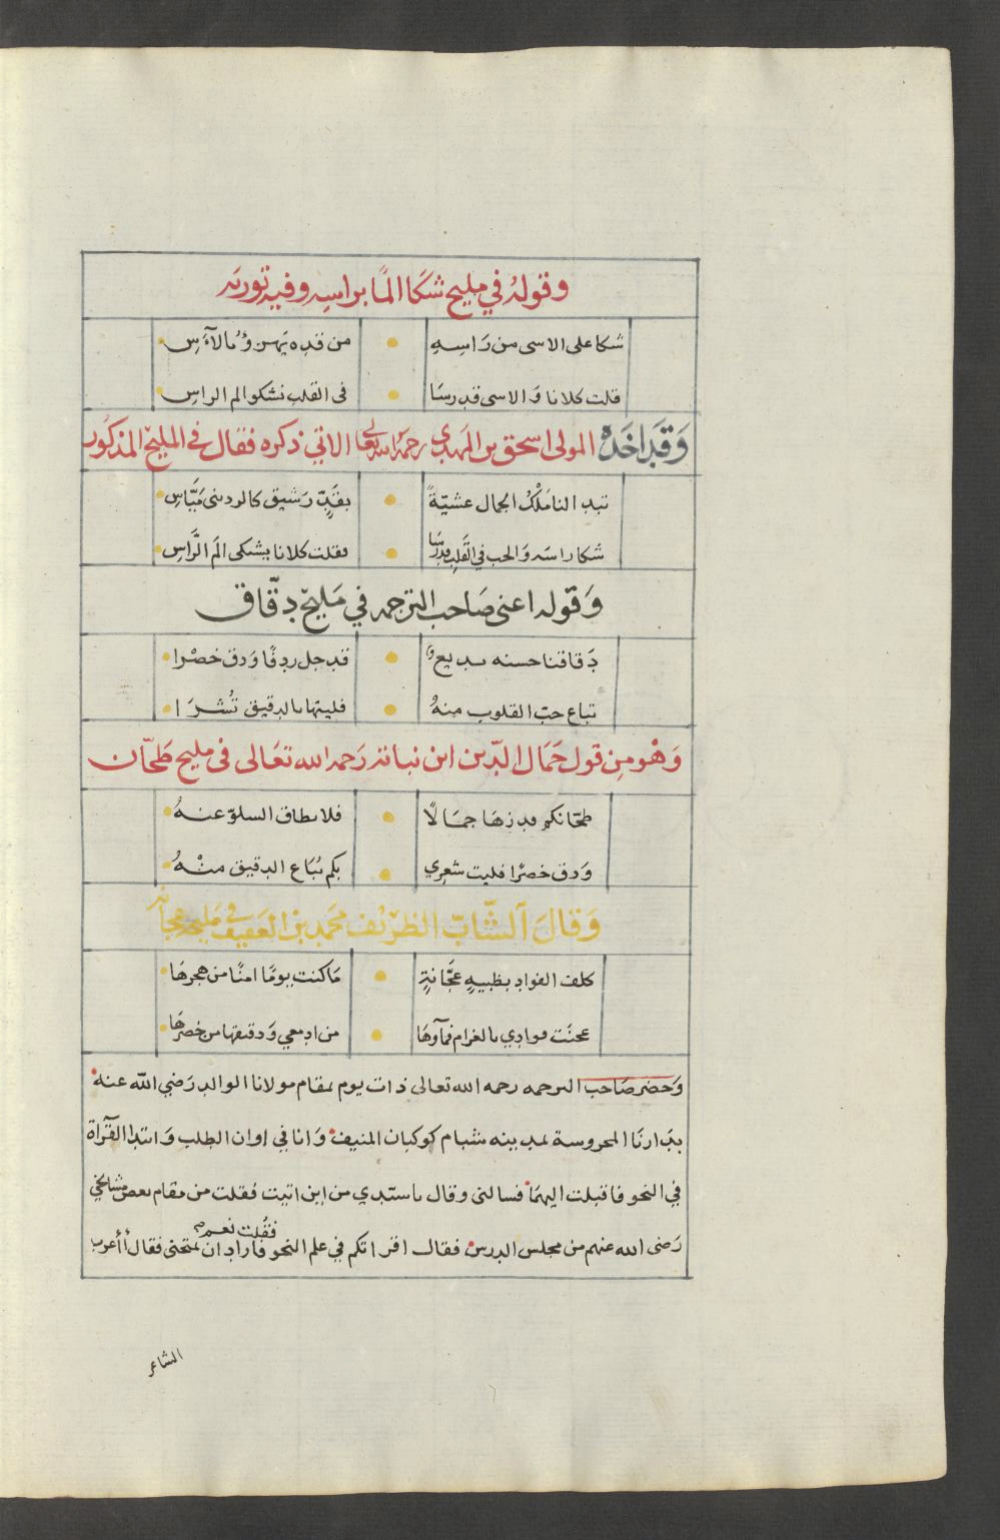 وقوله في مليح شكا المًا براسه وفيه تورية
شكا على الاسى من رَاسِهِ • من قده يهزؤ بالآسِ
قلت كلانا وَالاسى قد رسَا • فى القلب نشكو الم الراسِ
وَقَد اخَذه المولى اسحق بن المهدي رحمه الله تعالى الاتي ذكره فقال في المليح المذكور
تبدا لنا مَلْكُ الجمال عشيّةً • بقَدٍّ رَشيق كالردينى مَيَّاسِ
شكا راسَه وَالحب في القَلب قد رسَا • فقلت كلانا يشتكى المَ الرَّاسِ
وَقوله اعنى صَاحب الترجمه في مَليح دقّاق
دَقاقنا حسنه بديع • قد جل ردفًا وَدق خصْرا
تباع حبّ القلوب منهُ • فليتها بالدقيق تُشرَا
وَهْو مِن قول جَمَال الدّين ابن نباتة رَحمه الله تعَالى فى مليح طَحّان
طحّانكم قد زهَا جمَالًا • فلا يطاق السلوّ عنهُ
وَدق خصْرًا فليت شعري • بكم تُبَاع الدقيق منْهُ
وَقالَ آلشّابّ الظرْيف محَمد بن العَفيف في مَليحه عجانه
كلف الفواد بظبيةٍ عجَّانةٍ • مَا كنت يومًا امنًا من هجرهَا
عجنَت فوادي بالغرام فمآوهَا • من ادمعي وَدقيقها من خصرهَا
وَحضر صَاحب الترجمه رحمه الله تعالى ذات يوم بمقام مولانا الوالد رَضي الله عنه
بدَارنَا المحروسة بمدينه شبام كوكبان المنيف وَانا في اوان الطلب وَابتدا القرآة
في النحو فاقبلت اليهمَا فسالنى وقال ياسيّدي من اين اتيت فقلت من مقام بعض مشايخي
رَضى الله عنهم من مجلس الدرس فقال اقراتكم في علم النحو فقُلت نعم فاراد ان يمتحنى فقال أأعرب
الشاعر